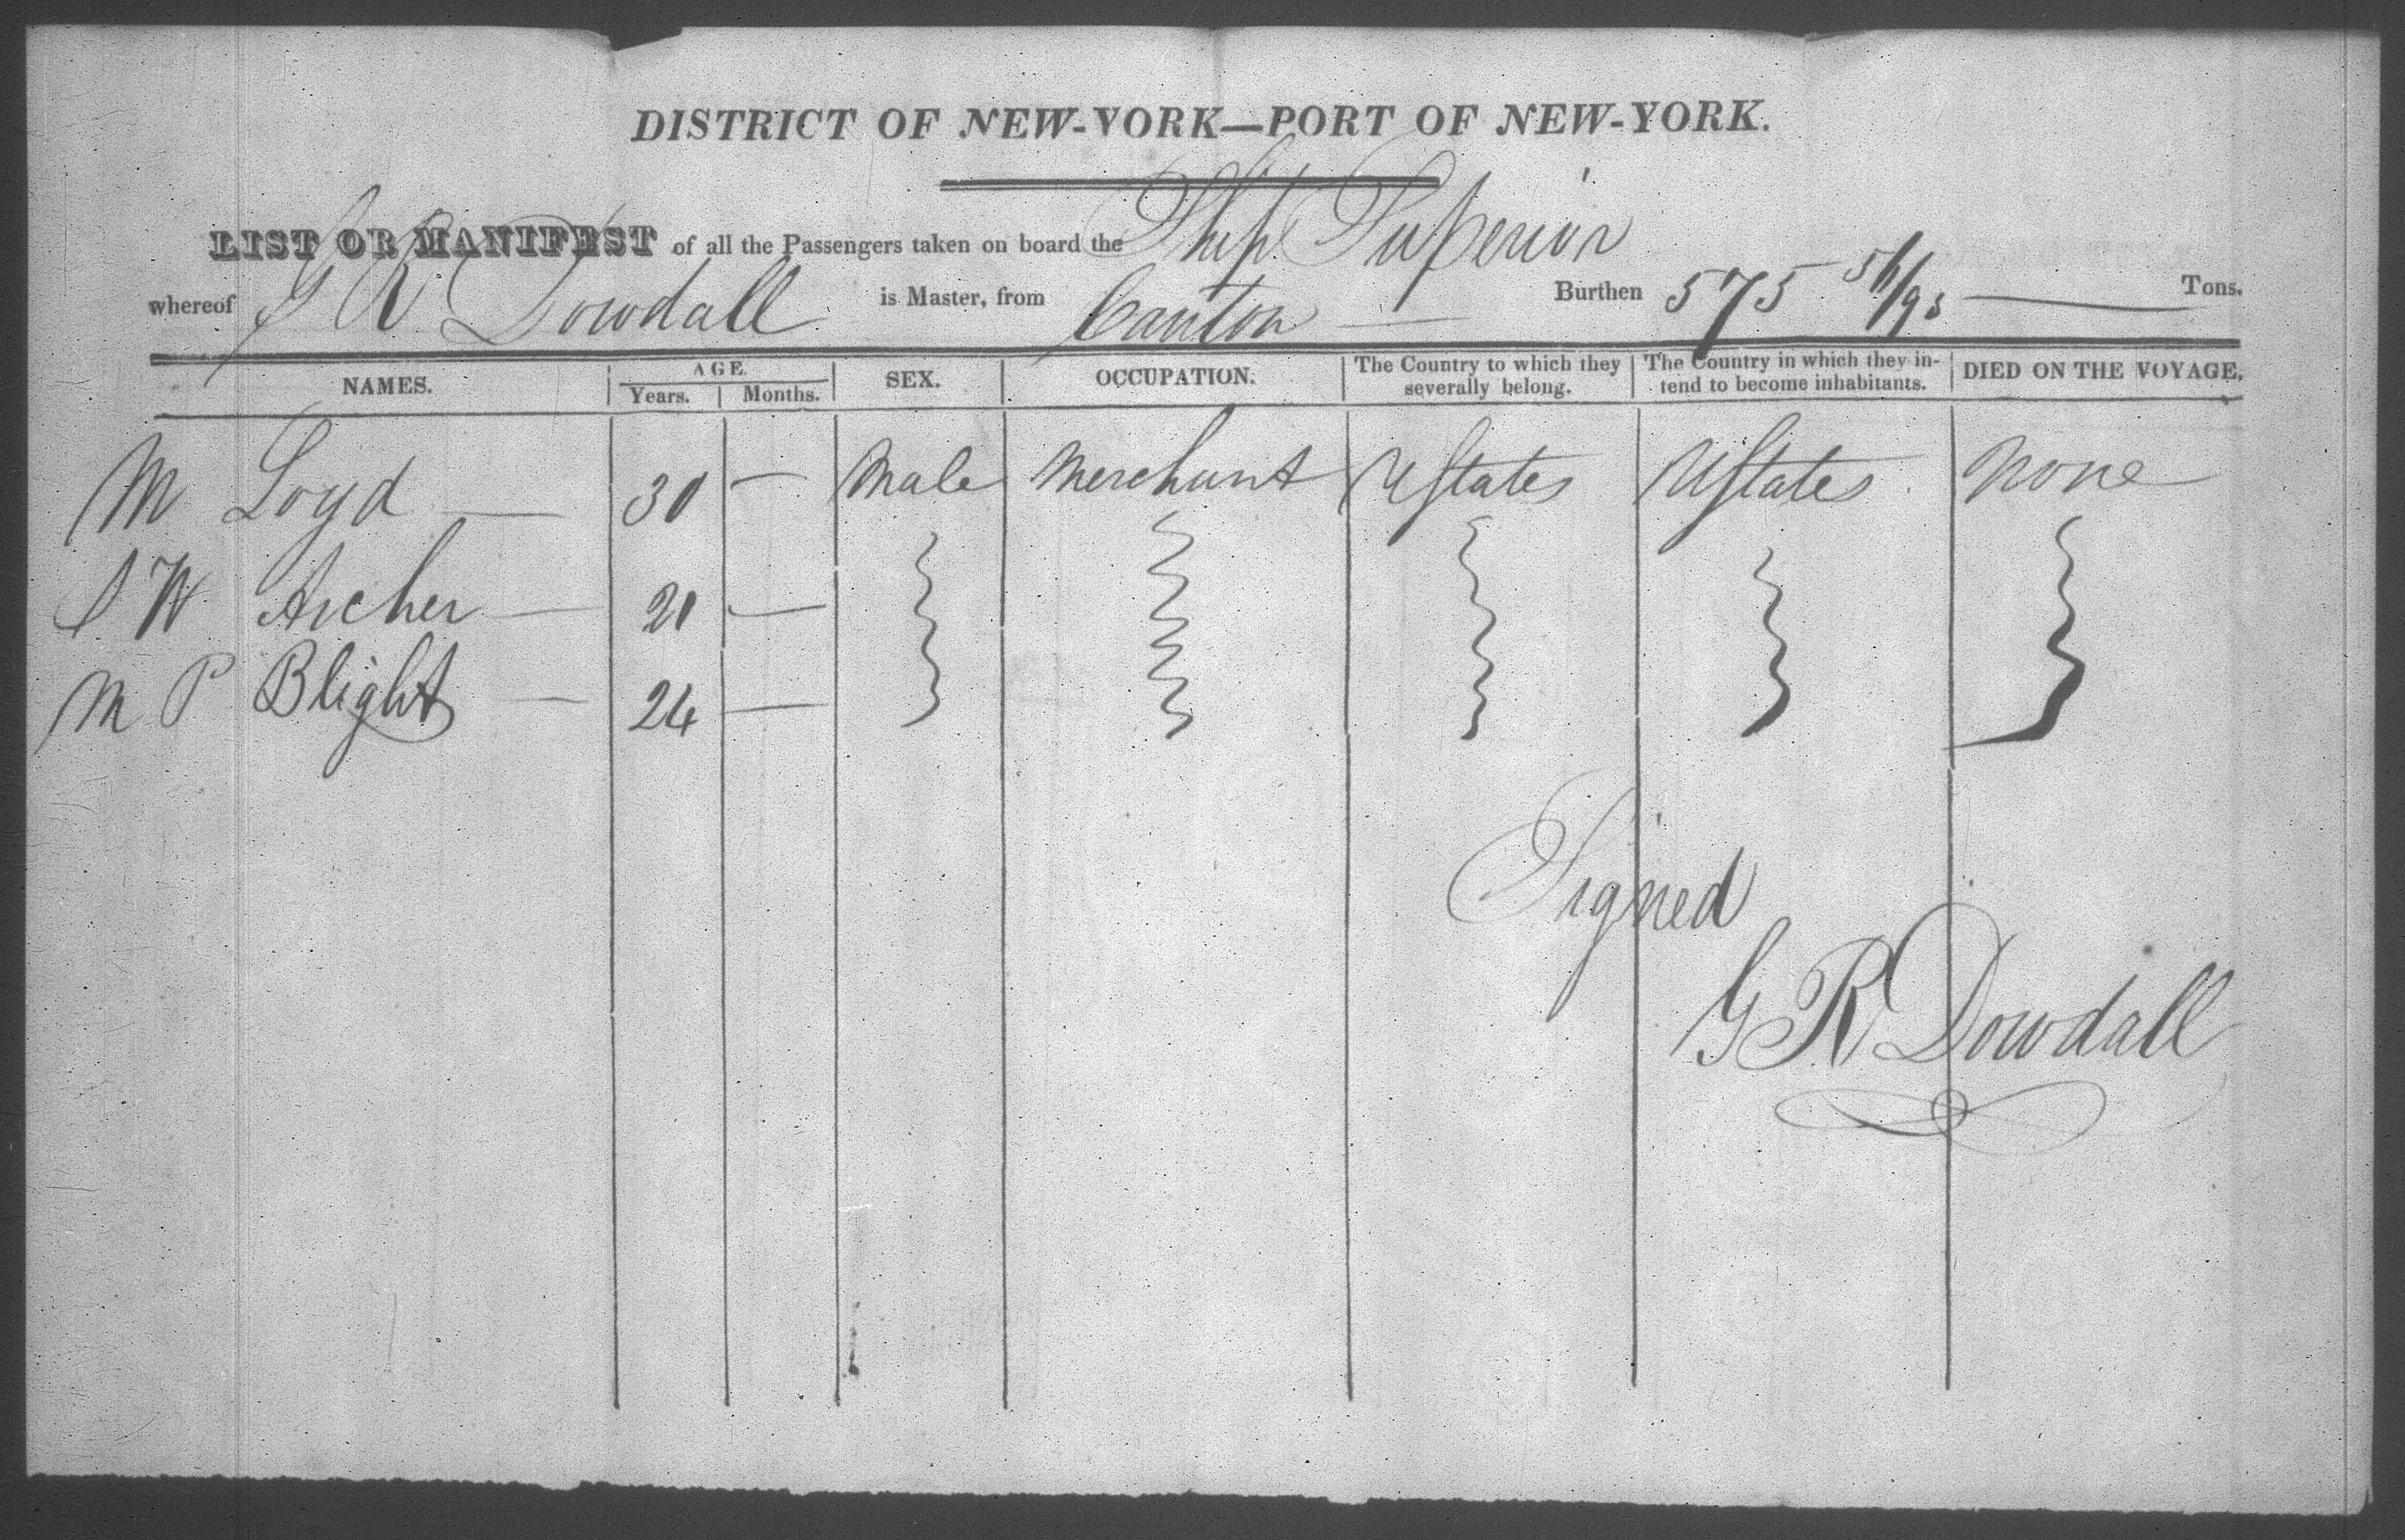 DISTRICT OF NEW-YORK—PORT OF NEW-YORK.
LIST OR MANIFEST of all the Passengers taken on board the Ship Superior
whereof G R Dowdall is Master, from Canton — Burthen 575 /95 — Tons.
NAMES. AGE. Years. Months. SEX. OCCUPATION. The Country to which they severally belong. The Country in which they intend to become inhabitants. DIED ON THE VOYAGE.
M Loyd — 30 — Male Merchant UStates UStates None
W Archer — 21 —
M P Blight — 24 —
Signed
G R Dowdall